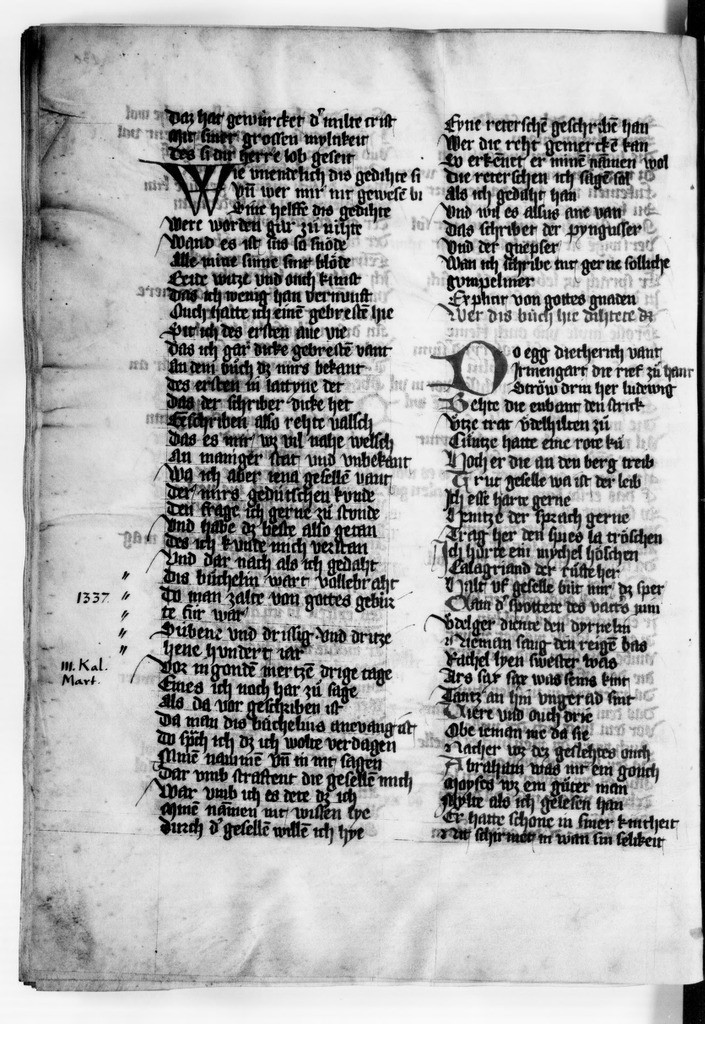 Daz hat gewurcket d' milte crist
Mit siner grossen miltikeit
Des si dir herre lob geseit
Wie vnendelich dis gedihte si
Vn̄ wer mir nit gewesē bi
Sine helffe dis gedihte
Were worden gar zů nihte
Wand es ist sus so snöde
Alle mine sinne sint blöde
Beide witze vnd ouch kunst
Das ich wenig han vernunst
Ouch hatte ich einē gebrestē hie
Bit ich des ersten ane vie
Das ich gar dicke gebrestē vant
An dem bůch dz mirs bekant
Des ersten in latyne der
Das der schriber dicke het
Geschriben also rehte valsch
Das es mir wz vil nahe welsch
An maniger stat vnd vnbekant
Wa ich aber iena gesellē vant
Der mirs gedutschen kvnde
Den frage ich gerne zů stunde
Vnd habe dz beste also getan
Des ich kvnde mich verstan
Vnd dar nach als ich gedaht
Dis bůchelin wart vollebraht
1337. Do man zalte von gottes gebur
te fur war
Sůbene vnd drissig vnd dritze
hene hvndert iar
III. Kal. Mart.
Vor in gondē mertzē drige tage
Eines ich noch har zů sage
Als da vor geschriben ist
Da man dis bůchelins anevang ist
Do sp̄ch ich dz ich wolte verdagen
Minē nammē vn̄ in nit sagen
Dar vmb straftent die gesellē mich
War vmb ich es dete dz ich
Minē nāmen nit wissen lye
Durch d' gesellē willē ich hye
Eyne reterschē geschribē han
Wer die reht gemerckē kan
So erkēnet er minē namen wol
Die reterschen ich sagē sol
Als ich gedaht han
Vnd wil es alsus ane van
Das schriber der pyngusser
Vnd der gnepser
Wan ich schribe nit gerne solliche
gumpelmer
Explicit von gottes gnaden
Wer dis bůch hie dihtete dz
Do egg dietherich vant
Irmengart die rief zů hant
Ströw drin her ludewig
Sehte die enbant den strick
Vtze trat vdelhilten zů
Cůntze hatte eine rote ků
Noch er die an den berg treib
Trut geselle wa ist der leib
Ich esse harte gerne
Nentze der sprach gerne
Trag her den spies la tröschen
Ich hörte ein mychel höschen
Calagriand der rüste her
Halt vf geselle büt mir dz sper
Vdelger dichte den dyrnelin
Nieman sang den reigē bas
Rachel lyen swester was
Ars sar sex was seins kint
Tantz an him vngerad sint
Viere vnd ouch drie
Obe ieman me da sie
Nacher wz dez geslehtes ouch
Abraham was nit ein gouch
Moyses wz ein gůter man
Milte als ich gelesen han
Er hatte schone in siner kintheit
Nit schirmet in wan sin selikeit